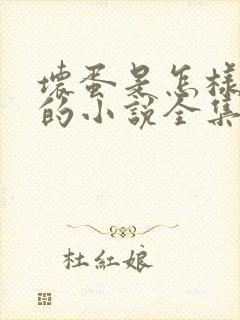 壞蛋是怎樣
的小說全集
杜紅娘